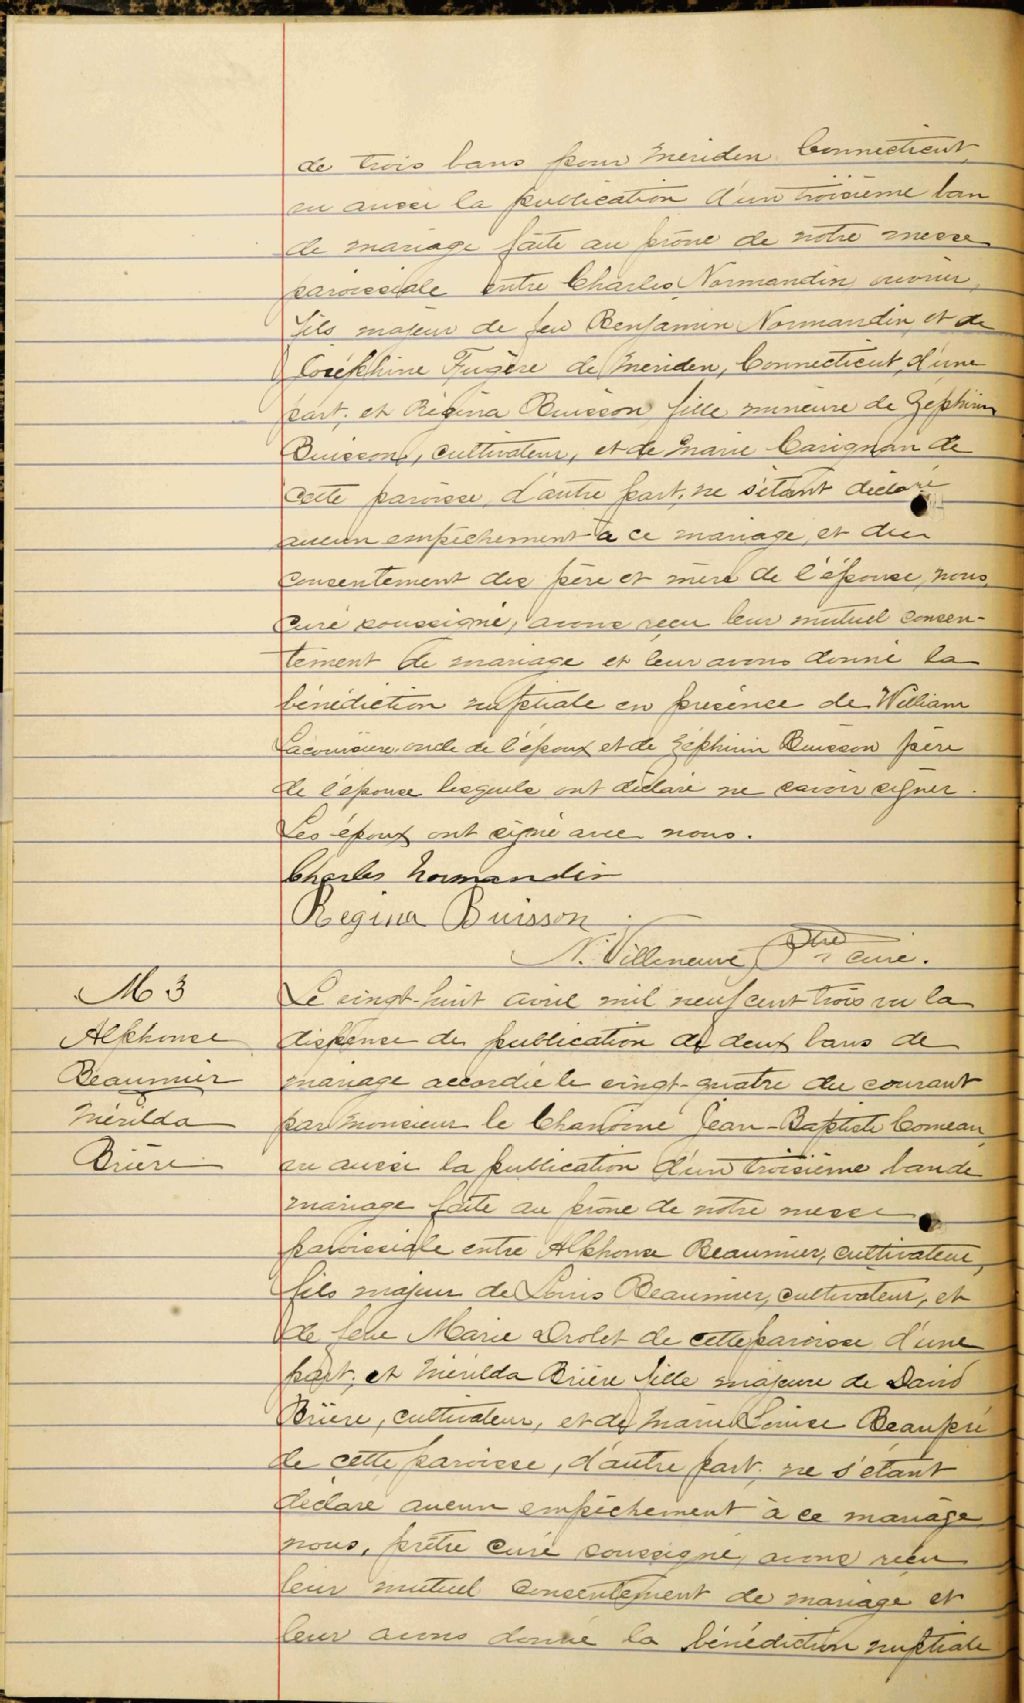 de trois bans pour Meriden Connecticut,
vu aussi la publication d'un troisième ban
de mariage faite au prône de notre messe
paroissiale entre Charles Normandin ouvrier,
fils majeur de feu Benjamin Normandin, et de
Joséphine Fugère de Meriden, Connecticut, d'une
part; et Régina Buisson, fille mineure de Zéphirin
Buisson, cultivateur, et de Marie Carignan de
cette paroisse, d'autre part; ne s'étant déclaré
aucun empêchement à ce mariage, et du
consentement des père et mère de l'épouse, nous,
curé soussigné, avons reçu leur mutuel consen-
tement de mariage et leur avons donné la
bénédiction nuptiale en présence de William
Lacoursière oncle de l'époux et de Zéphirin Buisson père
de l'épouse lesquels ont déclaré ne savoir signer.
Les époux ont signé avec nous.
Charles Normandin
Regina Buisson
N. Villeneuve, Ptre curé.
M 3
Alphonse
Beaumier
&
Mérilda
Brière
Le vingt-huit avril mil neuf cent trois vu la
dispense de publication de deux bans de
mariage accordée le vingt-quatre du courant
par Monsieur le Chanoine Jean-Baptiste Comeau,
vu aussi la publication d'un troisième ban de
mariage faite au prône de notre messe
paroissiale entre Alphonse Beaumier, cultivateur,
fils majeur de Louis Beaumier, cultivateur, et
de feue Marie Drolet de cette paroisse d'une
part; et Mérilda Brière fille majeure de David
Brière, cultivateur, et de Marie Louise Beaupré
de cette paroisse, d'autre part; ne s'étant
déclaré aucun empêchement à ce mariage,
nous, prêtre curé soussigné, avons reçu
leur mutuel consentement de mariage et
leur avons donné la bénédiction nuptiale